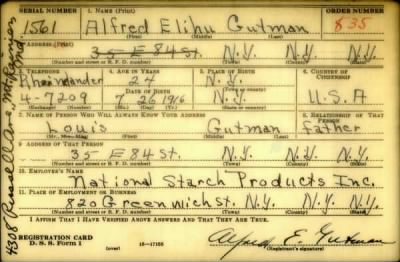 SERIAL NUMBER 1. NAME (Print) ORDER NUMBER
1561 Alfred Elihu Gutman 835
(First) (Middle) (Last)
2. ADDRESS (Print)
35 E 84 st. N.Y. N.Y.
(Number and street or R. F. D. number) (Town) (County) (State)
3. TELEPHONE 4. AGE IN YEARS 5. PLACE OF BIRTH 6. COUNTRY OF CITIZENSHIP
Rhinelander 24 N.Y.
DATE OF BIRTH (Town or county)
4-7209 7 26 1916 N.Y. U.S.A
(Exchange) (Number) (Mo.) (Day) (Yr.) (State or country)
7. NAME OF PERSON WHO WILL ALWAYS KNOW YOUR ADDRESS 8. RELATIONSHIP OF THAT PERSON
Louis Gutman father
(Mr., Mrs., Miss) (First) (Middle) (Last)
9. ADDRESS OF THAT PERSON
35 E 84 st. N.Y. N.Y.
(Number and street or R. F. D. number) (Town) (County) (State)
10. EMPLOYER'S NAME
National Starch Products Inc.
11. PLACE OF EMPLOYMENT OR BUSINESS
820 Greenwich st. N.Y. N.Y.
(Number and street or R. F. D. number) (Town) (County) (State)
I AFFIRM THAT I HAVE VERIFIED ABOVE ANSWERS AND THAT THEY ARE TRUE.
REGISTRATION CARD
D. S. S. Form 1 (over) 16-17105 Alfred E. Gutman
(Registrant's signature)
4308 Russell Ave.